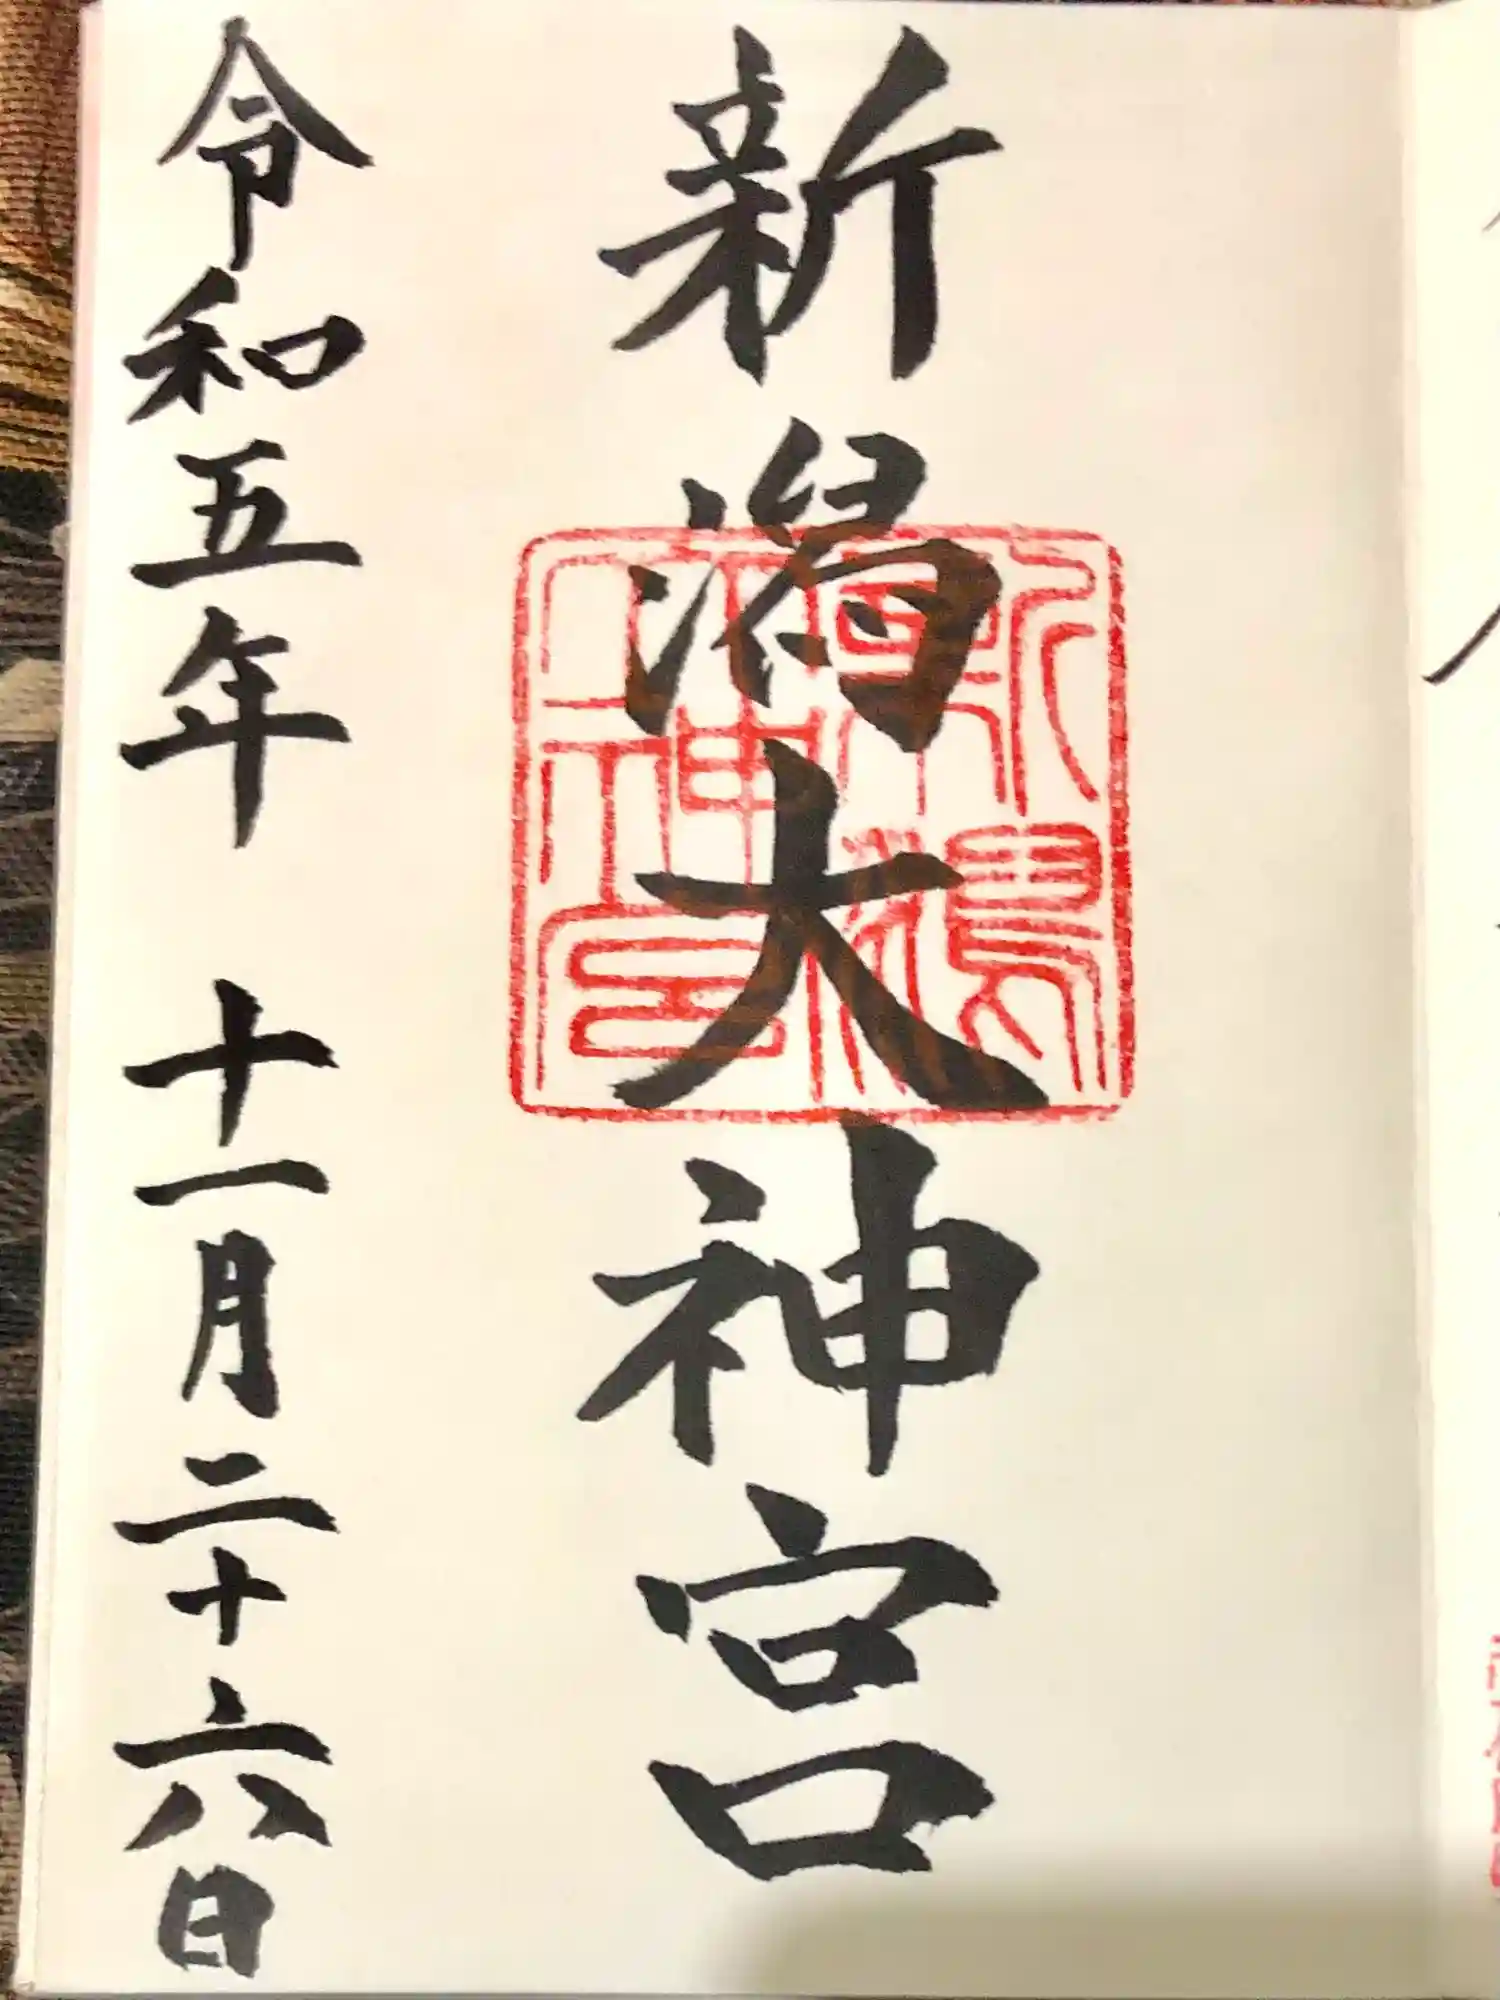 新潟大神宮
新潟大神宮
令和五年 十一月二十六日